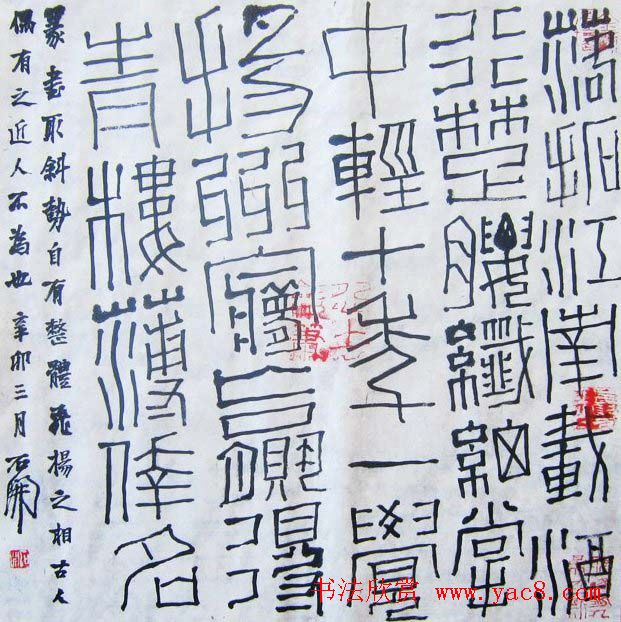 落拓江南載酒
行楚腰纖細掌
中輕十年一覺
揚州夢贏得
青樓薄倖名
篆書取斜勢自有整體飛揚之相古人
偶有之近人不為也辛卯三月石開
书法欣赏 www.yac8.com